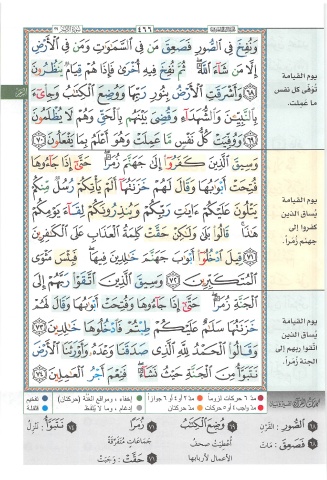 ٤٦٦
وَنُفِخَ فِي الصُّورِ فَصَعِقَ مَن فِي السَّمَٰوَٰتِ وَمَن فِي الْأَرْضِ
إِلَّا مَن شَاءَ اللَّهُ ثُمَّ نُفِخَ فِيهِ أُخْرَىٰ فَإِذَا هُمْ قِيَامٌ يَنظُرُونَ
٦٨ وَأَشْرَقَتِ الْأَرْضُ بِنُورِ رَبِّهَا وَوُضِعَ الْكِتَٰبُ وَجِا۟ىٓءَ
بِالنَّبِيِّۦنَ وَالشُّهَدَاءِ وَقُضِيَ بَيْنَهُم بِالْحَقِّ وَهُمْ لَا يُظْلَمُونَ
٦٩ وَوُفِّيَتْ كُلُّ نَفْسٍ مَّا عَمِلَتْ وَهُوَ أَعْلَمُ بِمَا يَفْعَلُونَ ٧٠
وَسِيقَ الَّذِينَ كَفَرُوا إِلَىٰ جَهَنَّمَ زُمَرًا حَتَّىٰ إِذَا جَاءُوهَا
فُتِحَتْ أَبْوَٰبُهَا وَقَالَ لَهُمْ خَزَنَتُهَا أَلَمْ يَأْتِكُمْ رُسُلٌ مِّنكُمْ
يَتْلُونَ عَلَيْكُمْ ءَايَٰتِ رَبِّكُمْ وَيُنذِرُونَكُمْ لِقَاءَ يَوْمِكُمْ
هَٰذَا قَالُوا بَلَىٰ وَلَٰكِنْ حَقَّتْ كَلِمَةُ الْعَذَابِ عَلَى الْكَٰفِرِينَ
٧١ قِيلَ ادْخُلُوا أَبْوَٰبَ جَهَنَّمَ خَٰلِدِينَ فِيهَا فَبِئْسَ مَثْوَى
الْمُتَكَبِّرِينَ ٧٢ وَسِيقَ الَّذِينَ اتَّقَوْا رَبَّهُمْ إِلَى
الْجَنَّةِ زُمَرًا حَتَّىٰ إِذَا جَاءُوهَا وَفُتِحَتْ أَبْوَٰبُهَا وَقَالَ لَهُمْ
خَزَنَتُهَا سَلَٰمٌ عَلَيْكُمْ طِبْتُمْ فَادْخُلُوهَا خَٰلِدِينَ ٧٣
وَقَالُوا الْحَمْدُ لِلَّهِ الَّذِي صَدَقَنَا وَعْدَهُ وَأَوْرَثَنَا الْأَرْضَ
نَتَبَوَّأُ مِنَ الْجَنَّةِ حَيْثُ نَشَاءُ فَنِعْمَ أَجْرُ الْعَٰمِلِينَ ٧٤
يوم القيامة
توفى كل نفس
ما عملت.
يوم القيامة
يساق الذين
كفروا إلى
جهنم زُمراً.
يوم القيامة
يساق الذين
اتقوا ربهم إلى
الجنة زُمراً.
مد ٦ حركات لزوماً
مد ٢ أو ٤ أو ٦ جوازاً
إخفاء، ومواقع الغُنَّة (حركتان)
تفخيم
مد واجب ٤ أو ٥ حركات
مد حركتان
إدغام، وما لا يُلفظ
قلقلة
٦٨ الصُّورِ: القَرْن
٦٨ فَصَعِقَ: مَات
٦٩ وُضِعَ الْكِتَٰبُ
أُعْطِيَتْ صحفُ
الأعمال لأربابها
٧١ زُمَرًا
جَماعَاتٍ مُتَفَرِّقَة
٧١ حَقَّتْ: وَجَبَتْ
٧٤ نَتَبَوَّأُ: نَنْزِلُ